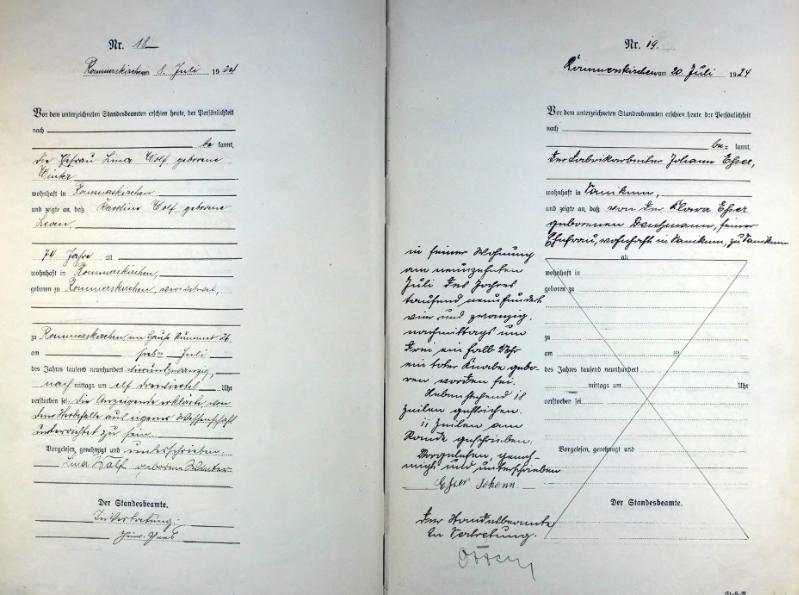 Nr. 18
Rommerskirchen am 8. Juli 1924
Vor dem unterzeichneten Standesbeamten erschien heute, der Persönlichkeit
nach
be kannt,
die Ehefrau Lina Wolf geborene
wohnhaft in Rommerskirchen
und zeigte an, daß Karoline Wolf geborene
74 Jahre alt
wohnhaft in Rommerskirchen,
geboren zu Rommerskirchen, verwitwet,
zu Rommerskirchen im Hause Nummer 26
am sieben Juli
des Jahres tausend neunhundert vierundzwanzig,
nach mittags um elf dreiviertel Uhr
verstorben sei. Die Anzeigende erklärte, von
dem Sterbefalle aus eigener Wissenschaft
unterrichtet zu sein.
Vorgelesen, genehmigt und unterschrieben
Lina Wolf geborene
Der Standesbeamte.
In Vertretung:
Nr. 19.
Rommerskirchen am 20 Juli 1924
Vor dem unterzeichneten Standesbeamten erschien heute, der Persönlichkeit
nach
be= kannt,
der Fabrikarbeiter Johann Esser,
wohnhaft in Vanikum,
und zeigte an, daß von der Klara Esser
geborenen Deuhmann, seiner
Ehefrau, wohnhaft in Vanikum, zu Vanikum
in seiner Wohnung
am neunzehnten
Juli des Jahres
tausend neunhundert
vier und zwanzig
nachmittags um
drei ein halb Uhr
ein toter Knabe gebo-
ren worden sei.
Nebenstehend 18
Zeilen gestrichen.
11 Zeilen am
Rande geschrieben.
Vorgelesen, geneh-
migt und unterschrieben
Esser Johann
Der Standesbeamte
In Vertretung.
alt
wohnhaft in
geboren zu
zu
am
des Jahres tausend neunhundert
mittags um Uhr
verstorben sei
Vorgelesen, genehmigt und
Der Standesbeamte.